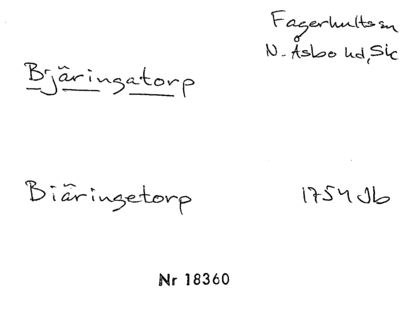 Fagerhults sn
N. Åsbo hd, Sk
Bjäringatorp
Biäringetorp 1754 Jb
Nr 18360